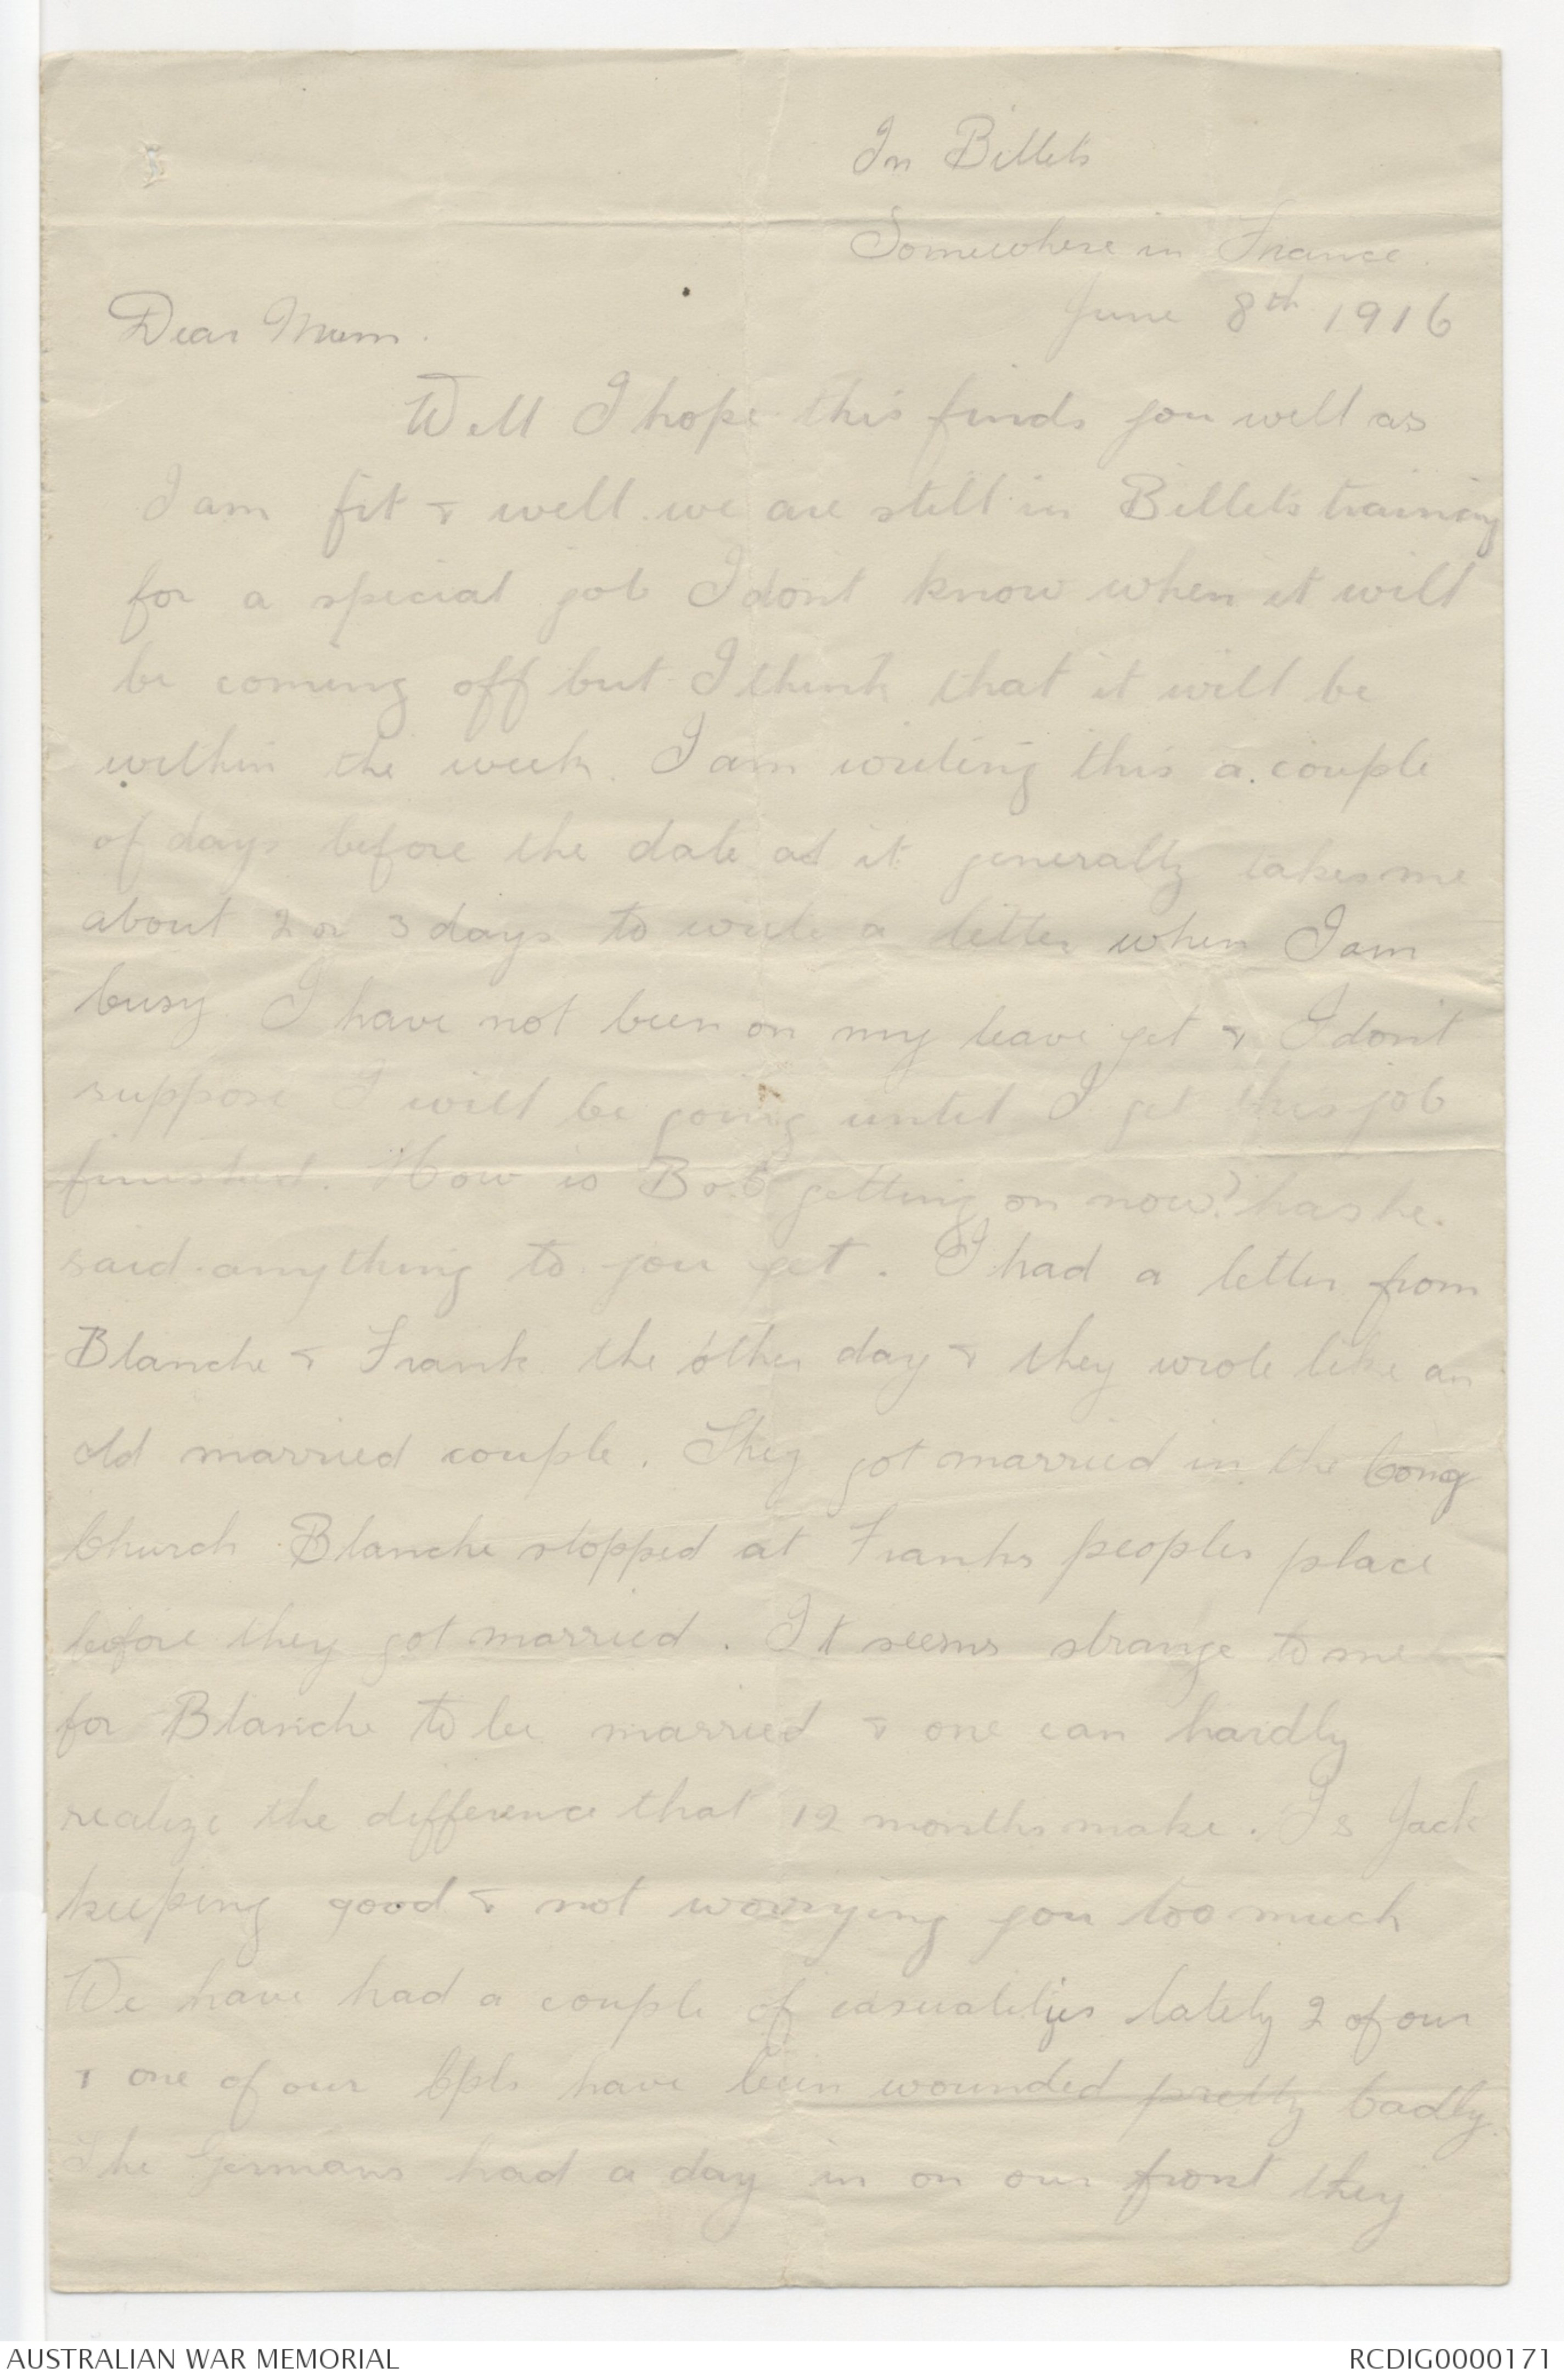 In Billets
Somewhere in France.
June 8th 1916
Dear Mum.
Well I hope this finds you well as
I am fit & well. we are still in Billets training
for a special job I dont know when it will
be coming off but I think that it will be
within the week. I am writing this a couple
of days before the date as it generally takes me
about 2 or 3 days to write a letter when I am
busy. I have not been on my leave yet & I don't
suppose I will be going until I get this job
finished. How is Bob getting on now? has he.
said anything to you yet. I had a letter from
Blanche & Frank the other day & they wrote like an
old married couple. They got married in the Cong
Church Blanche stopped at Franks peoples place
before they got married. It seems strange to me
for Blanche to be married & one can hardly
realize the difference that 12 months make. Is Jack
keeping good & not worrying you too much
We have had a couple of lately 2 of our
& one of our Cpls have been wounded pretty badly.
The Germans had a day in on our front they
AUSTRALIAN WAR MEMORIAL
RCDIG0000171